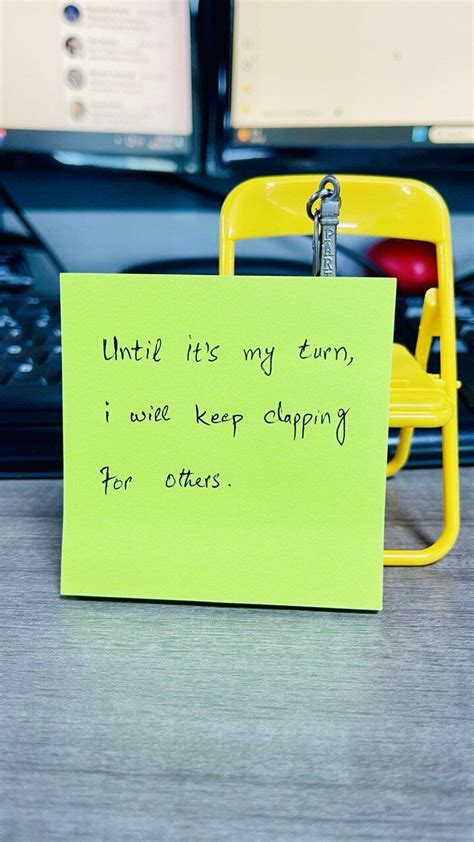 Until it's my turn,
i will keep clapping
For others.